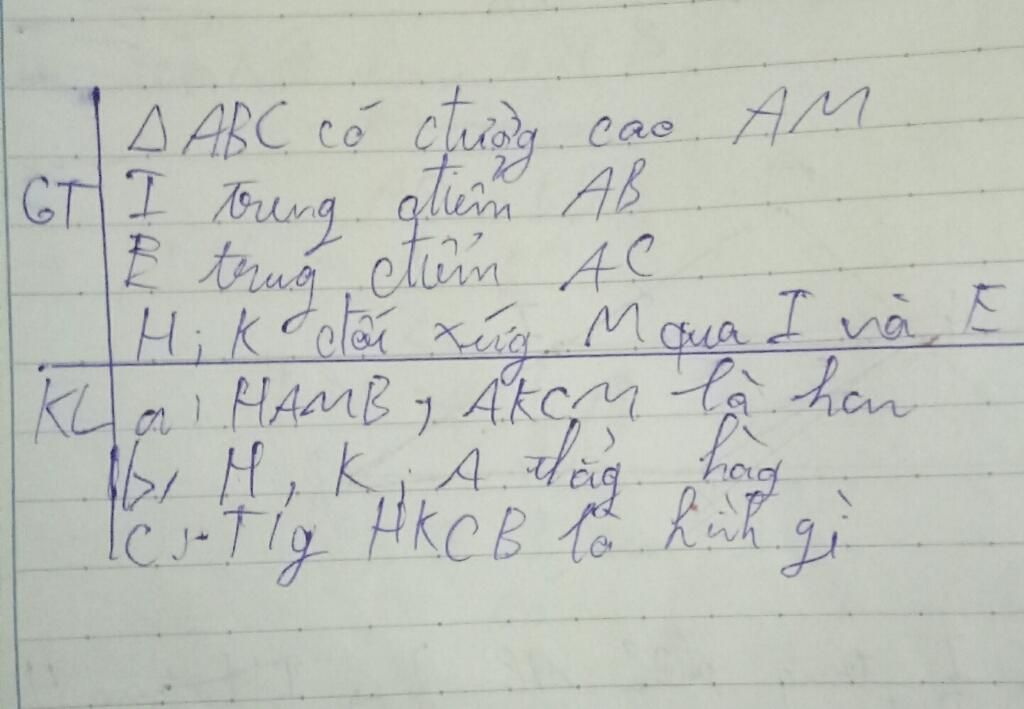 Δ ABC có đường cao AM
GT I trung điểm AB
E trug điểm AC
H; K đối xứg M qua I và E
KL a, HAMB, AKCM là hcn
b, H, K, A thẳg hàg
c, T/g HKCB là hìh gì